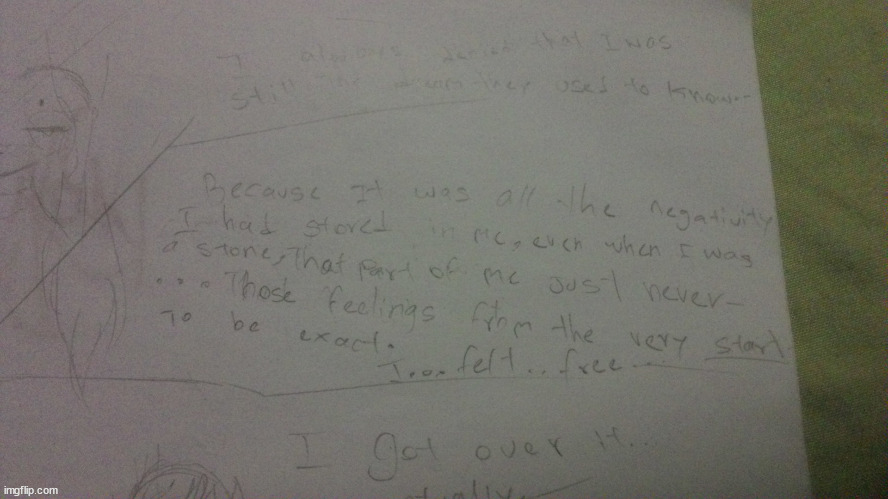 I always denied that I was
still the they used to know--
Because It was all the negativity
I had stored in me, even when I was
a stone, That part of me just never-
... Those feelings from the very start
To be exact.
I... felt.. free...
I got over it..
imgflip.com